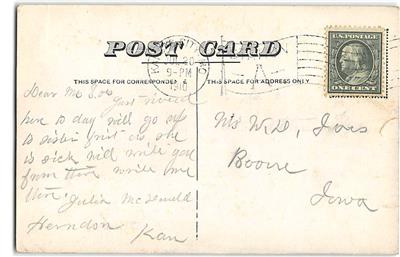 POST CARD
THIS SPACE FOR CORRESPONDENCE
THIS SPACE FOR ADDRESS ONLY.
20
9-PM
1910
U.S. POSTAGE
ONE CENT
Dear Mr
Just arrived
here to day will go
to sister as she
is sick will write you
from there write me
there. Julia McDonald
Herndon
Kan
Boone
Iowa